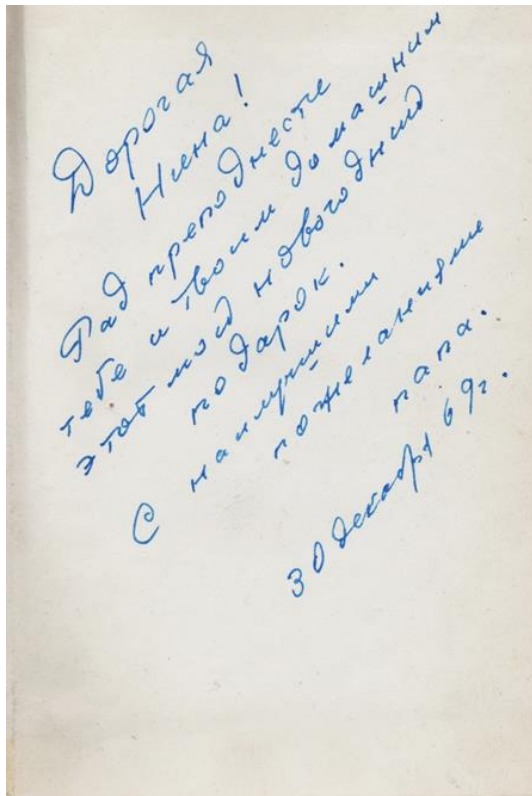 Дорогая
Нина!
Рад преподнести
тебе и твоим домашним
этот мой новогодний
подарок.
С наилучшими
пожеланиями
папа.
30 декабря 69 г.